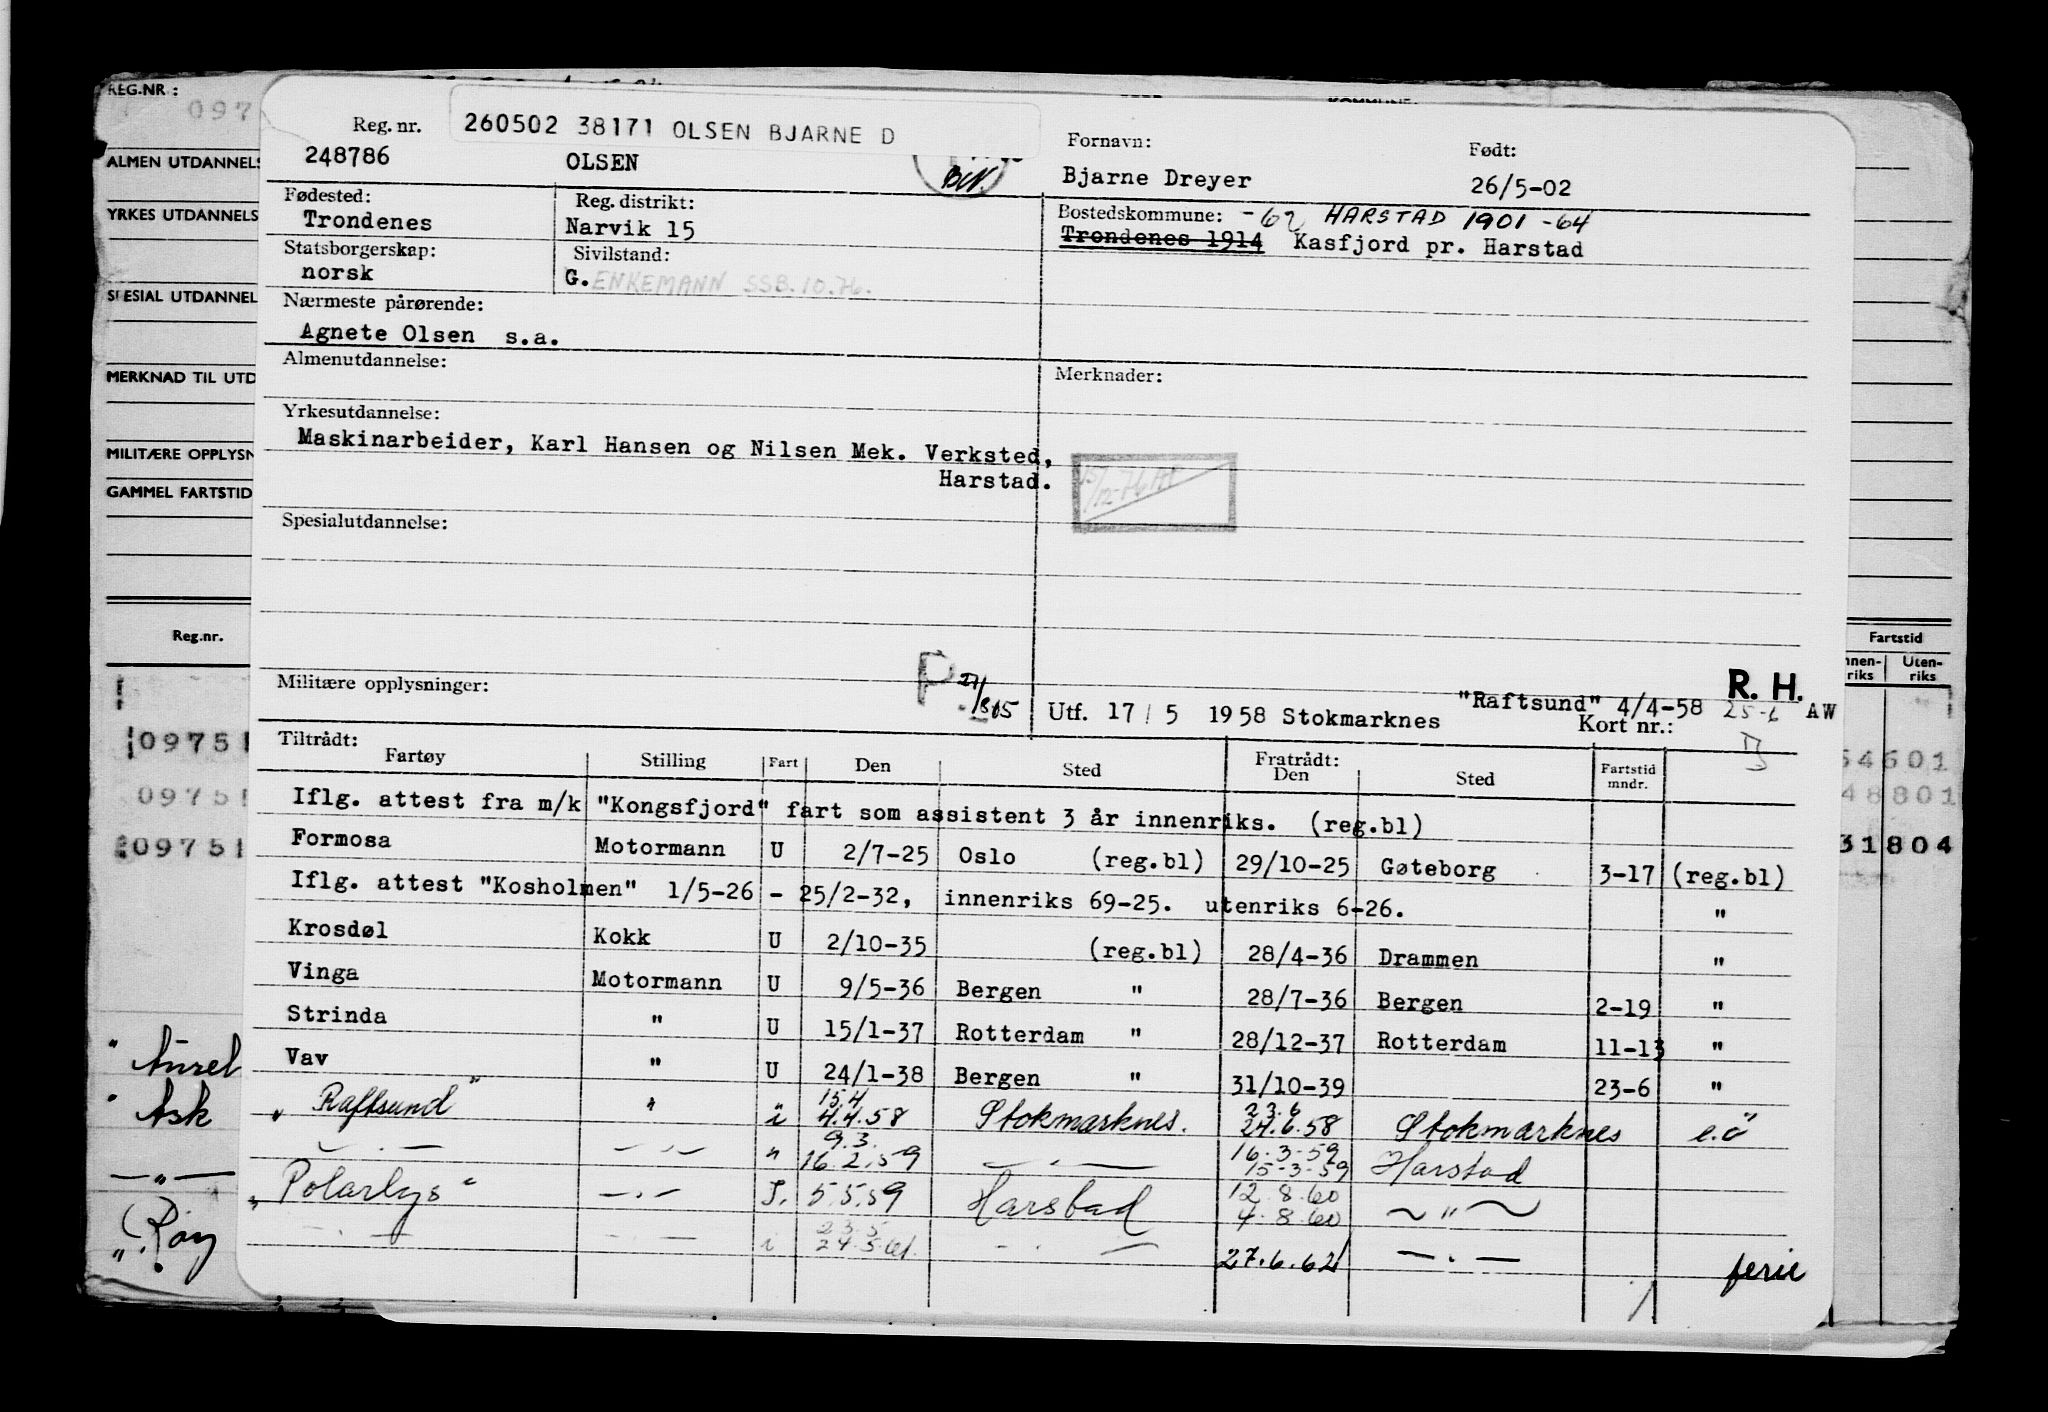 REG.NR :
097
ALMEN UTDANNELS
YRKES UTDANNELS
SPESIAL UTDANNEL
MERKNAD TIL UTD
MILITÆRE OPPLYSN
GAMMEL FARTSTID
Reg.nr.
09751
09751
09751
" Aurel
" Ask
— " —
" Røy
Reg. nr. 260502 38171 OLSEN BJARNE D
248786 OLSEN
Fornavn: Født:
Bjarne Dreyer 26/5-02
Fødested: Reg. distrikt:
Trondenes Narvik 15
Bostedskommune: HARSTAD 1901 -64
Trondenes 1914 Kasfjord pr. Harstad
Statsborgerskap: Sivilstand:
norsk G. ENKEMANN SSB.10.76.
Nærmeste pårørende:
Agnete Olsen s.a.
Almenutdannelse: Merknader:
Yrkesutdannelse:
Maskinarbeider, Karl Hansen og Nilsen Mek. Verksted,
Harstad.
Spesialutdannelse:
Militære opplysninger: P
R. H.
"Raftsund" 4/4-58 25-6 AW
Utf. 17/5 1958 Stokmarknes Kort nr.:
Tiltrådt: Fratrådt:
Fartøy Stilling Fart Den Sted Den Sted Fartstid mndr.
Iflg. attest fra m/k "Kongsfjord" fart som assistent 3 år innenriks. (reg.bl)
Formosa Motormann U 2/7-25 Oslo (reg.bl) 29/10-25 Gøteborg 3-17 (reg.bl)
Iflg. attest "Kosholmen" 1/5-26 - 25/2-32, innenriks 69-25. utenriks 6-26. "
Krosdøl Kokk U 2/10-35 (reg.bl) 28/4-36 Drammen "
Vinga Motormann U 9/5-36 Bergen " 28/7-36 Bergen 2-19 "
Strinda " U 15/1-37 Rotterdam " 28/12-37 Rotterdam 11-13 "
Vav " U 24/1-38 Bergen " 31/10-39 23-6 "
15.4 23.6
" Raftsund " " i 4.4.58 Stokmarknes. 24.6.58 Stokmarknes e.ö
9.3. 16-3-59
— . — — . — " 16.2.59 — . — 15-3-59 Harstad
12.8.60
" Polarlys " — . — 5.5.59 Harstad 4.8.60 ~ " ~
23.5
— . — — . — i 24.5.61. — . — 27.6.62 — . — ferie
Fartstid
Uten-
riks riks
54601
48801
31804